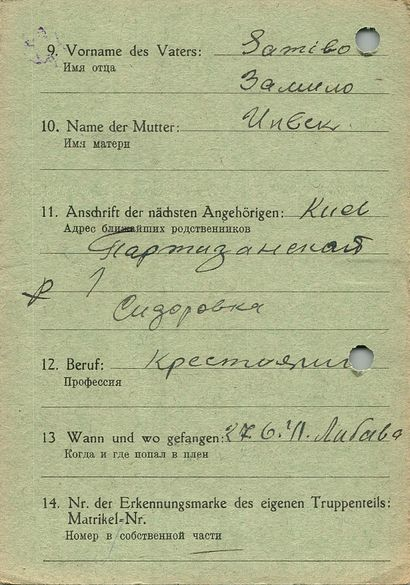 9. Vorname des Vaters:
Имя отца
10. Name der Mutter:
Имя матери
11. Anschrift der nächsten Angehörigen: Киев
Адрес ближайших родственников
Партизанская
1
Сидоровка
12. Beruf: Крестьянин
Профессия
13 Wann und wo gefangen: 27.6.41. Либава
Когда и где попал в плен
14. Nr. der Erkennungsmarke des eigenen Truppenteils:
Matrikel-Nr.
Номер в собственной части